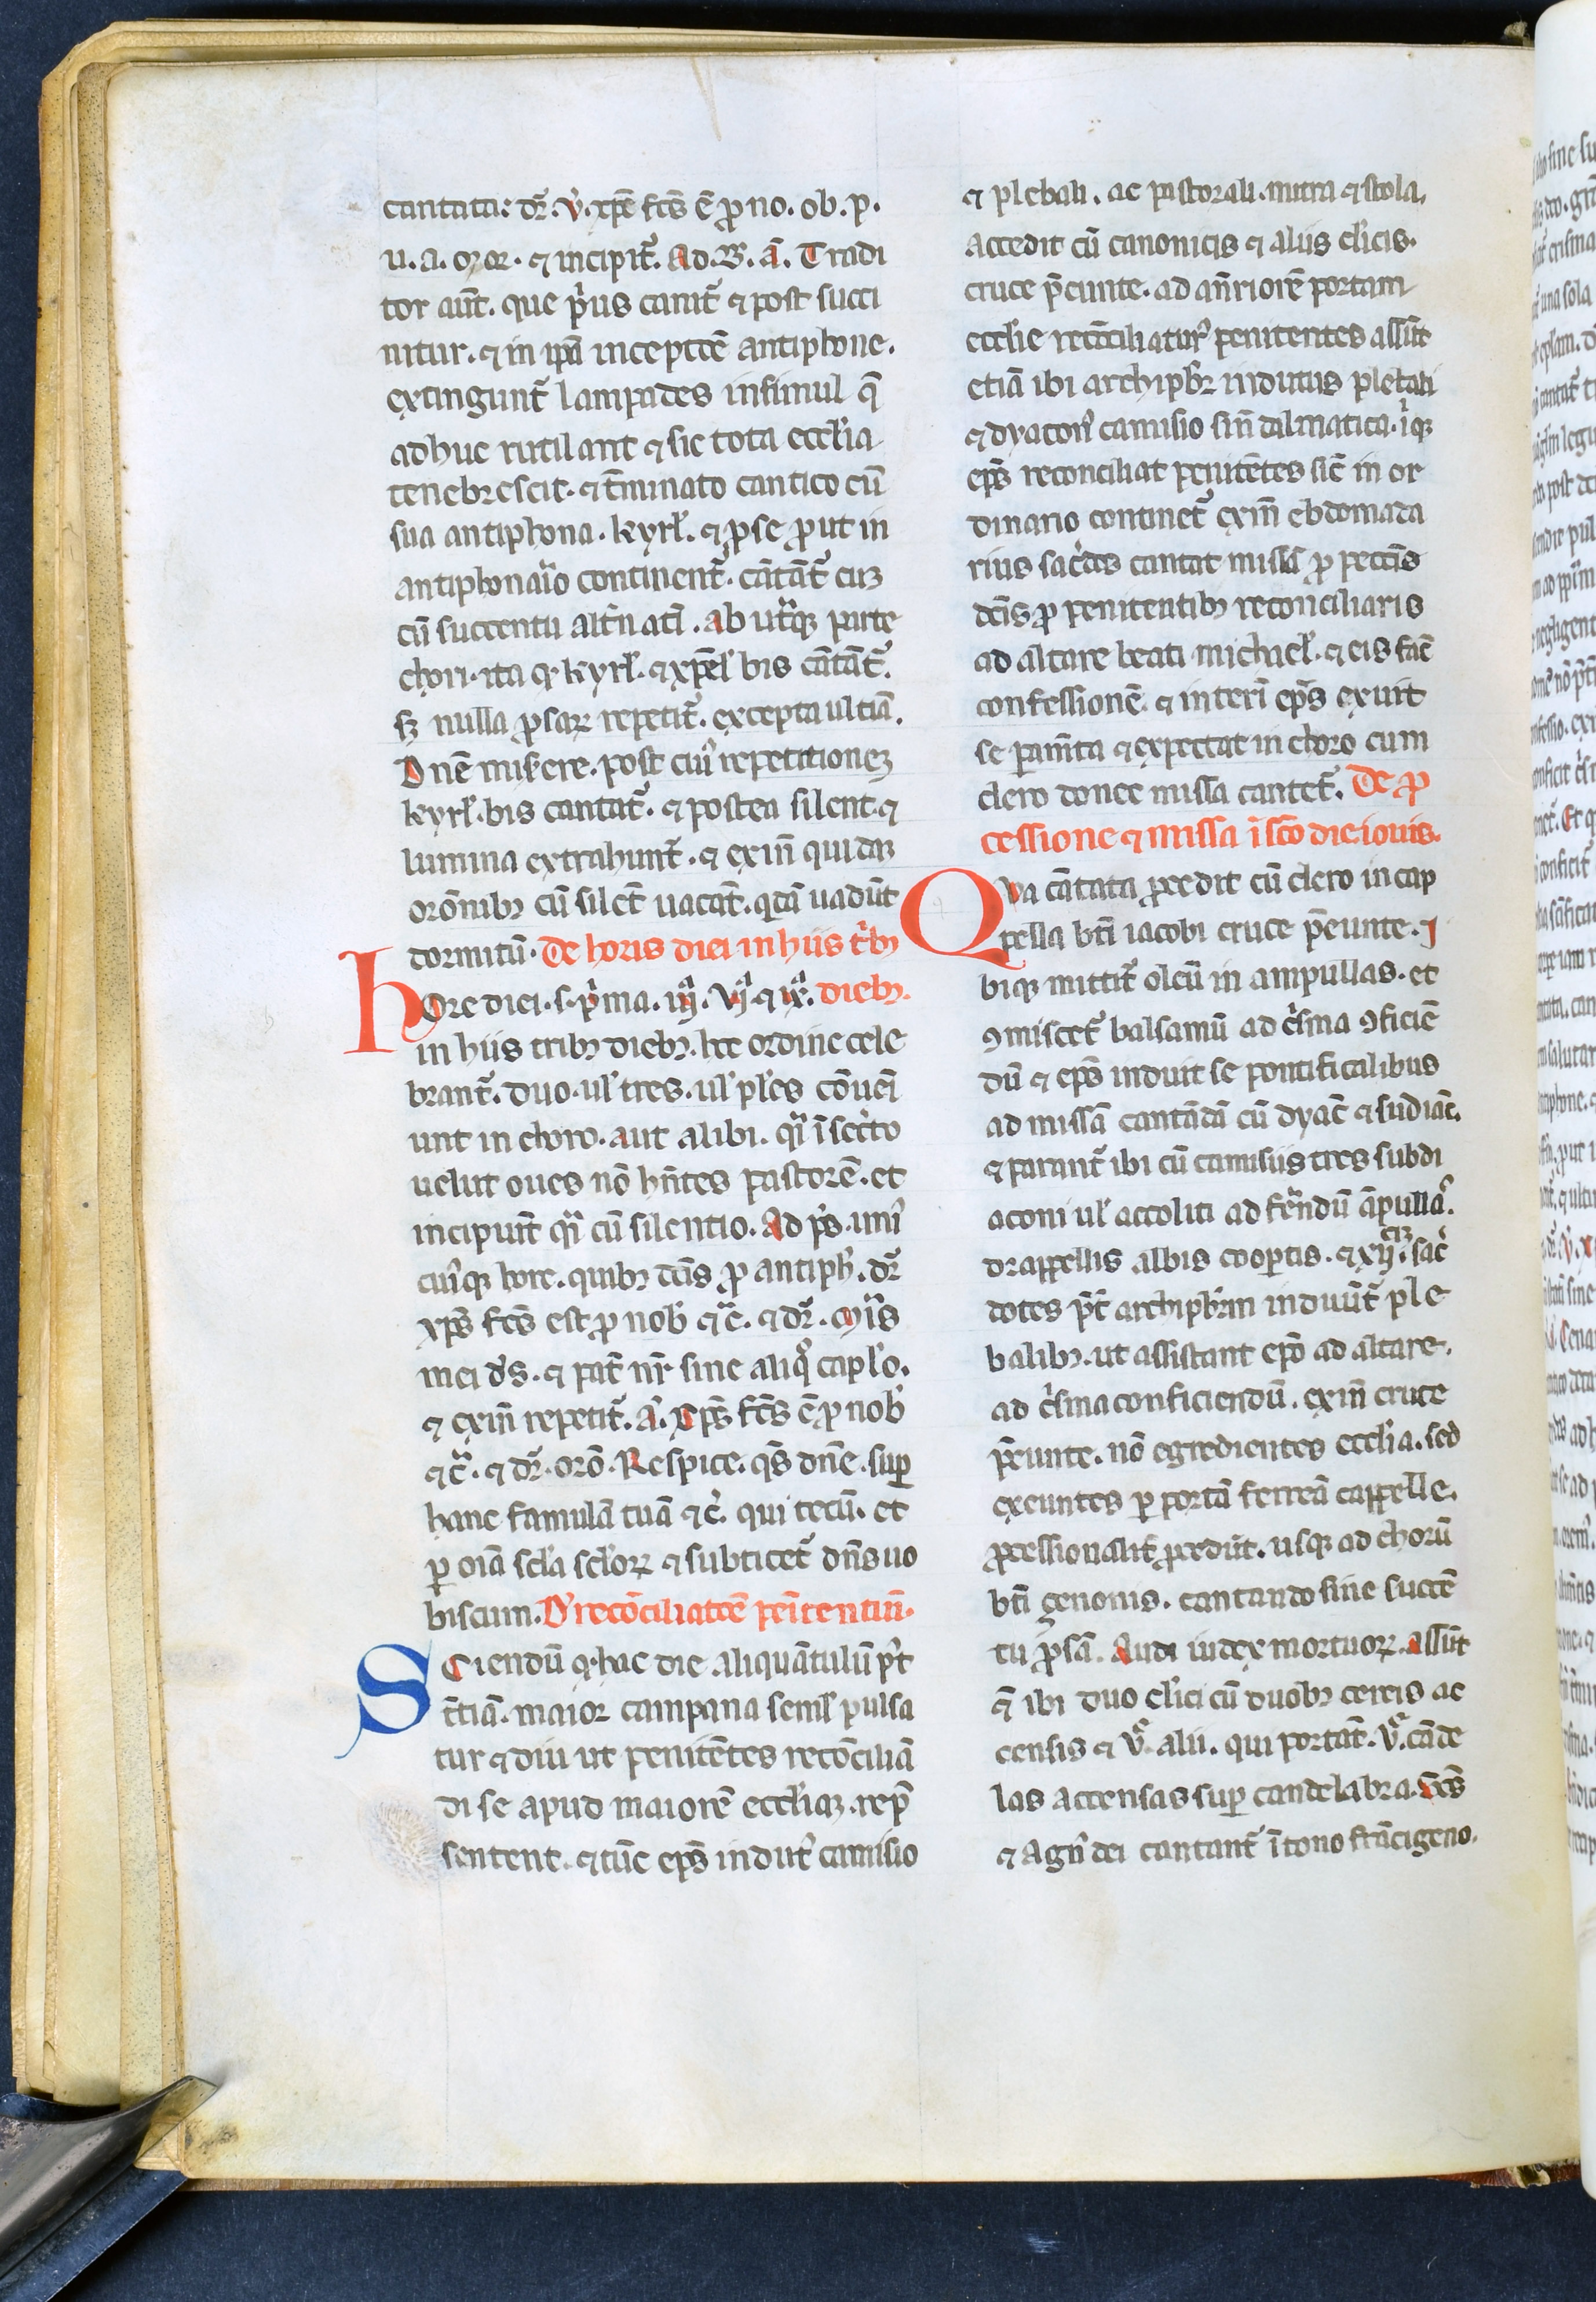 cantata: dr̄. v̄. xp̄e fc̄s ē ꝓ no. ob. p.
u. a. oꝛ oꝛ. ⁊ incipit᷑. Ad. B. ā. Tradi
tor aūt. que p̄us canit᷑ ⁊ post succi
nitur. ⁊ in ipā incepcōē antiphone.
extingunt᷑ lampades insimul q̄
adhuc rutilant ⁊ sic tota eccl̄ia
tenebrescit. ⁊ t̄minato cantico cū
sua antiphona. kyrl̄. ⁊ ꝓse ꝓut in
antiphonaīo continent᷑. cātāt᷑ cuꝫ
cū succentu alt̄natī. ab utāqꝫ parte
chori. ita ꝙ kyrl̄. ⁊ xp̄el̄ bis cātāt᷑.
sꝫ nulla ꝓsaꝝ repetit᷑. excepta ultīa.
Dn̄e mis̄ere. post cuiꝰ repetitioneꝫ
kyrl̄. bis cantat᷑. ⁊ postea silent. ⁊
lumina extrahunt᷑. ⁊ exīn quidaꝫ
orōnibꝫ cū silēt᷑ uacāt. qdā uadūt
dormitū. De horis diei in hiis t̄bꝫ
Hore diei. s. p̄ma. iij̄ᵃ. vjᵃ. ⁊ ixᵃ. diebꝫ.
in hiis tribꝫ diebꝫ. hoc ordine cele
brant᷑. duo. ul̓ tres. ul̓ pl̄es cōueī
unt in choro. aut alibi. qī ī secͬto
uelut oues nō hn̄tes pastorē. et
incipiūt qī cū silentio. Ad ps̄. uniꝰ
cuiꝰqꝫ hore. quibꝫ dcīs ꝓ antiph̄. dr̄
xp̄s fc̄s est ꝓ nob̄ ⁊c̄. ⁊ dr̄. Mīs
mei dꝰs. ⁊ pat̄ nr̄ sine aliqͦ capl̄o.
⁊ exīn repetit᷑. ā. Xp̄s fc̄s ē ꝓ nob̄
⁊c̄. ⁊ dr̄. orō. Respice. qs̄ dn̄e. suꝑ
hanc familā tuā ⁊c̄. qui tecū. et
ꝑ oīa scl̄a scl̄oꝝ ⁊ subticet᷑ dn̄s uo
biscum. Dꝰ recōciliatōē penitentiū.
Sciendū ꝙ hac die aliquātulū pͦt
t̄tiā. maior campana semel pulsa
tur ⁊ diu ut penitētes recōciliā
di se apud maiorē eccl̄iaꝫ. rep̄
sentent. ⁊ tūc ep̄s indutꝰ camisio
⁊ plebali. ac pastorali. mitra ⁊ stola.
accedit cū canonicis ⁊ aliis cl̄icis.
cruce p̄eunte. ad an̄riorē portam
eccl̄ie recōciliaturꝰ penitentes assūt
etiā ibi archipbr̄ indutus plebali
⁊ dyaconꝰ camisio sin̄ dalmatica. iqꝫ
ep̄s reconciliat penitētes sic̄ in or
dinario continet᷑ exīn ebdomada
rius sac̄dos cantat missā ꝓ peccīs
dcīs ꝓ penitentibꝫ reconciliatis
ad altare beati michael̄. ⁊ eis fac̄
confessionē. ⁊ interī ep̄s exuit
se param̄ta ⁊ expectat in choro cum
clero donec missa cantet᷑. De ꝓ
cessione ⁊ missa ī sc̄o die iouis.
Qva cātata ꝓcedit cū clero in cap
pella bt̄i iacobi cruce p̄eunte. I
biqꝫ mittit᷑ oleū in ampullas. et
ꝯmiscet᷑ balsamū ad cͥsma ꝯficiē
dū ⁊ ep̄s induit se pontificalibus
ad missā cantādā cū dyac̄ ⁊ sudiac̄.
⁊ parant᷑ ibi cū camisiis tres subdi
aconi ul̓ accoliti ad fer̄ndū āpullaˢ.
drappellis albis coopertis. ⁊ xij. cuꝫ sac̄
dotes pͭ archipbr̄m induūt᷑ ple
balibꝫ. ut assistant ep̄o ad altare.
ad cͥsma conficiendū. exīn cruce
p̄eunte. nō egredientes eccl̄ia. sed
exeuntes ꝑ portā ferreā cappelle.
ꝓcessionalit᷑ ꝓcedūt. usqꝫ ad chorū
bt̄i genonis. cantando sine succē
tu ꝓsā. Audi iudex mortuoꝝ. assūt
q̄ ibi duo cl̄ici cū duobꝫ cereis ac
censis ⁊ vͤ. alii. qui portāt. vͤ. cāde
las accensas suꝑ candelabra. Sc̄s
⁊ Agnꝰ dei cantant᷑ ī tono frācigeno.